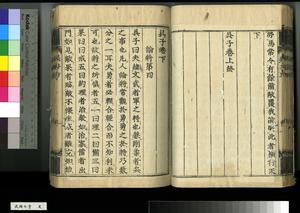 勞馬常令有餘備敵覆我能明此者横行天
下
吳子卷上終
吳子卷下
論將第四
吳子曰夫總文武者軍之將也兼剛柔者兵
之事也凡人論將常觀於勇勇之於將乃數
分之一耳夫勇者必輕合輕合而不知利未
可也故將之所慎者五一曰理二曰備三曰
果四曰戒五曰約理者治衆如治寡備者出
門如見敵果者臨敵不懷生戒者雖克如始